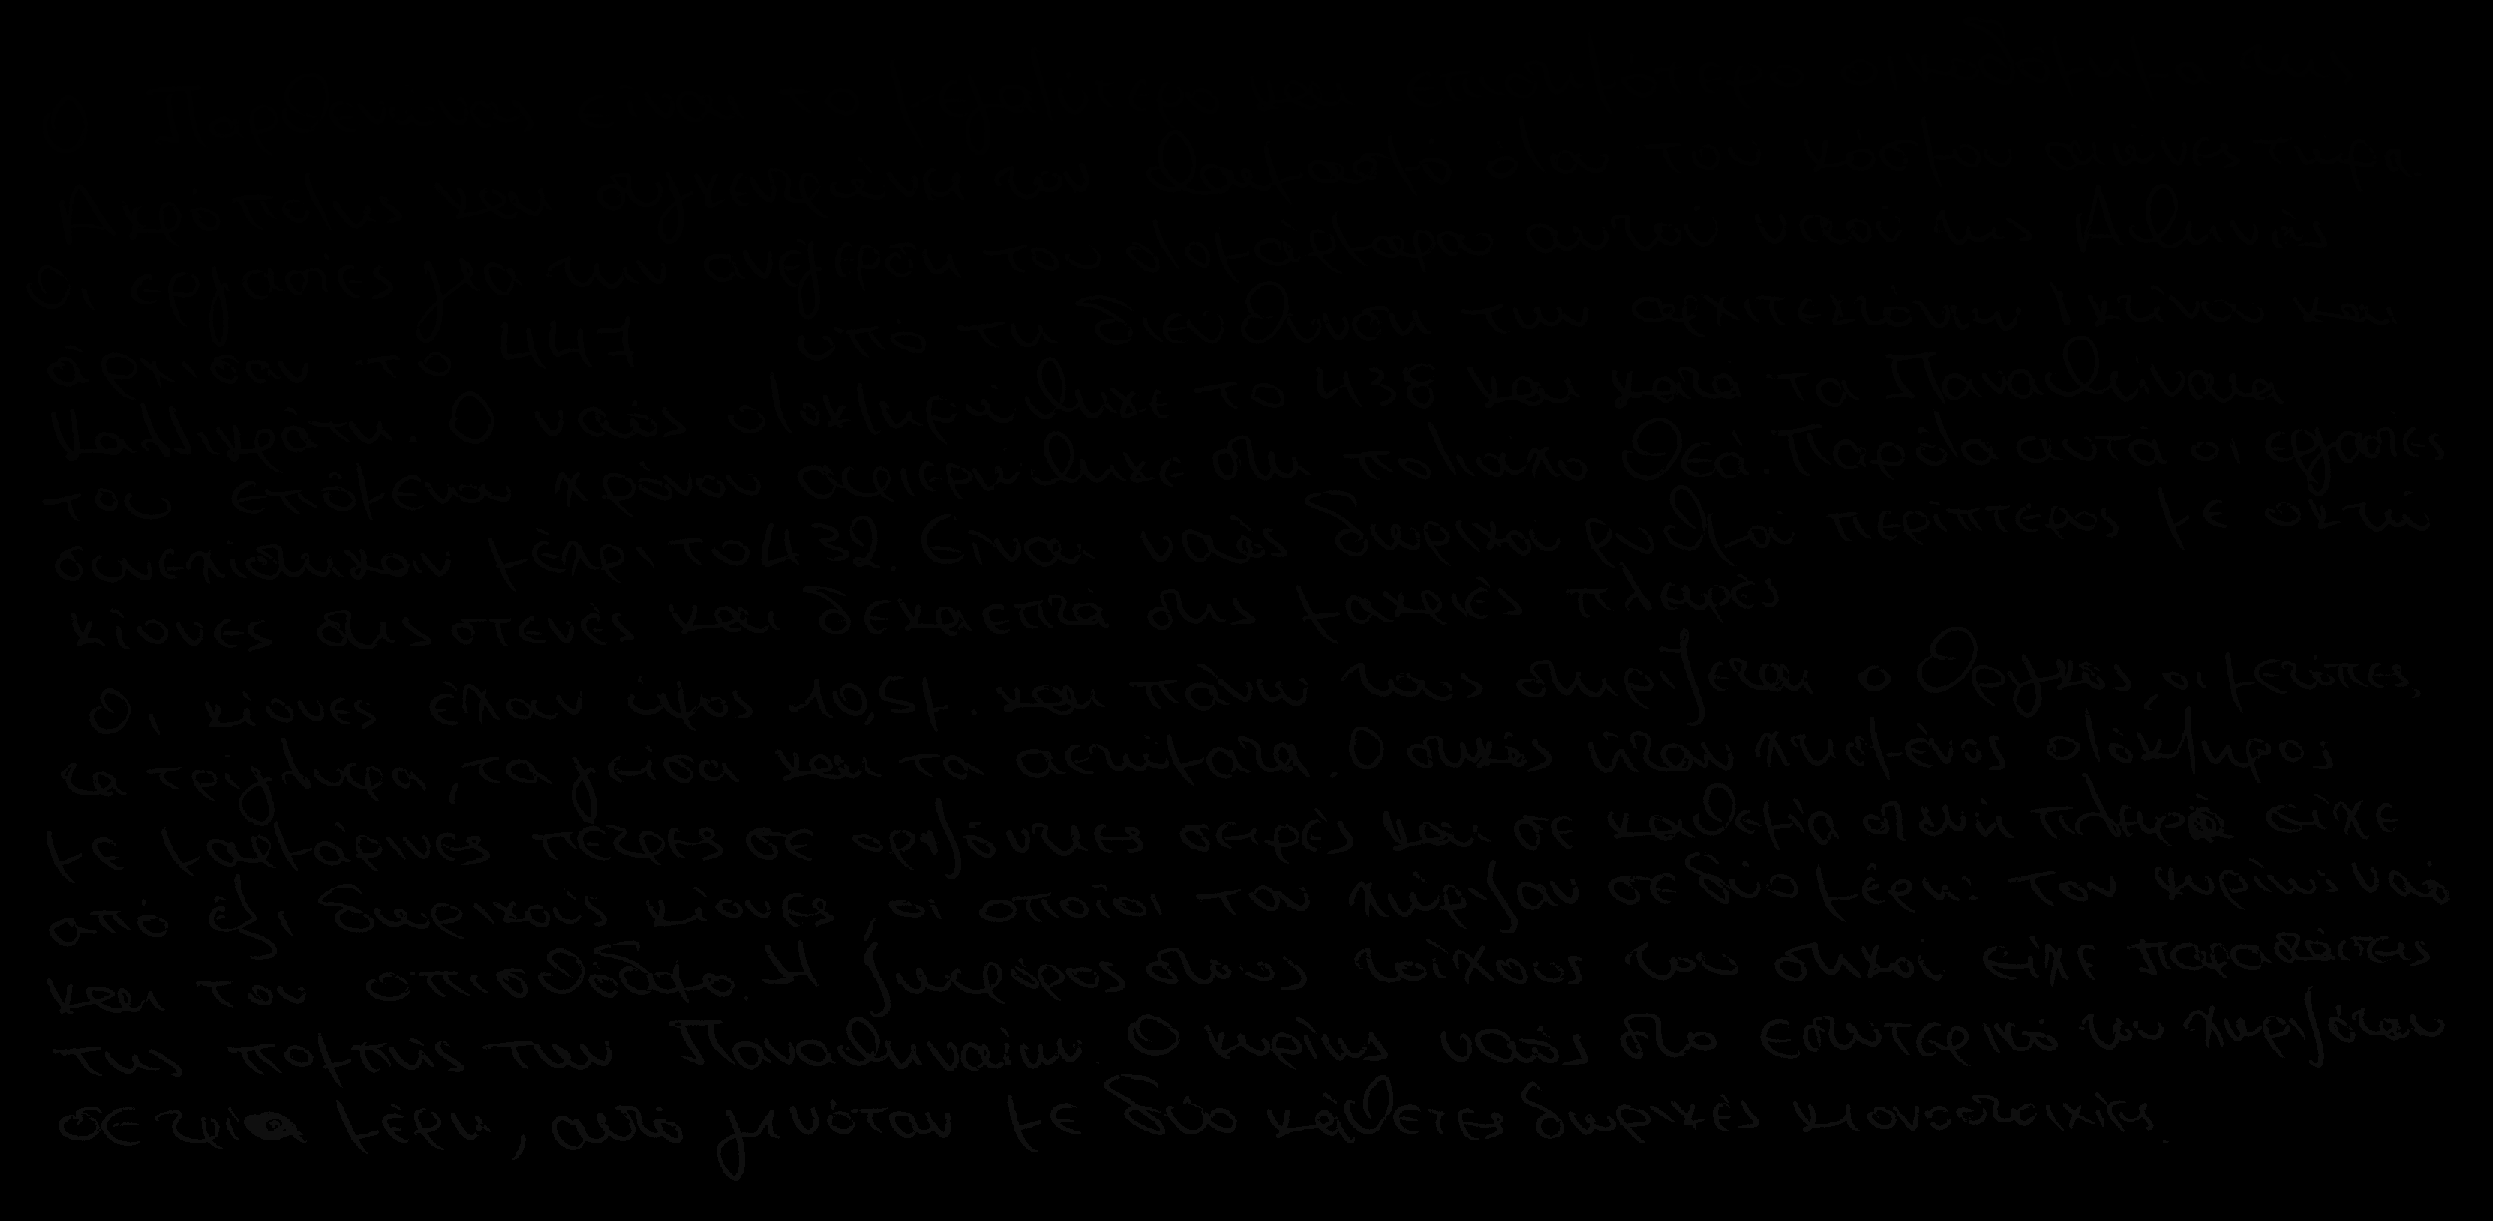 Ο Παρθενώνας
Ακρόπολης και συγκεντρώνει τον θαυμασμό όλου του κόσμου αιώνες τώρα
Οι εργασίες για την ανέγερση του ολομάρμαρου αυτού ναού της Αθηνάς
άρχισαν το 447 υπό τη διεύθυνση των αρχιτεκτόνων Ικτίνου και
Καλλικράτη. Ο ναός ολοκληρώθηκε το 438 και κατά τα Παναθήναια
του επόμενου χρόνου αφιερώθηκε στη πολιούχο θεά. Παρόλα αυτά οι εργασίες
συνεχίστηκαν μέχρι το 432. Είναι ναός δωρικού ρυθμού περίπτερος με οκτώ
κίονες στις στενές και δεκαεπτά στις μακριές πλευρές
Οι κίονες έχουν ύψος 10,5μ. και πάνω τους στηρίζεται ο θριγκός, οι μετόπες,
τα τρίγλυφα, τα γείσα και τα αετώματα. Ο σηκός ήταν χτισμένος ολόκληρος
με μαρμάρινες πέτρες σε οριζόντιες σειρές και σε καθεμία στενή πλευρά είχε
από έξι δωρικούς κίονες, οι οποίοι τον χώριζαν σε δύο μέρη: τον κυρίως ναό
και τον οπισθόδομο. Η ζωφόρος στους τοίχους του σηκού είχε παραστάσεις
της πομπής των Παναθηναίων. Ο κυρίως ναός στο εσωτερικό του χωριζόταν
σε τρία μέρη, αυτό γινόταν με δύο κάθετες δωρικές κιονοστοιχίες.